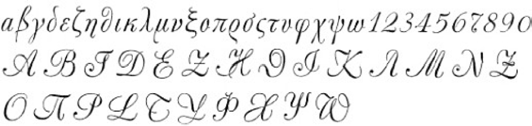 αβγδεζηθικλμνξοπρςτυφχψω1234567890
ΑΒΓΔΕΖΗΘΙΚΛΜΝΞ
ΟΠΡΣΤΥΦΧΨΩ